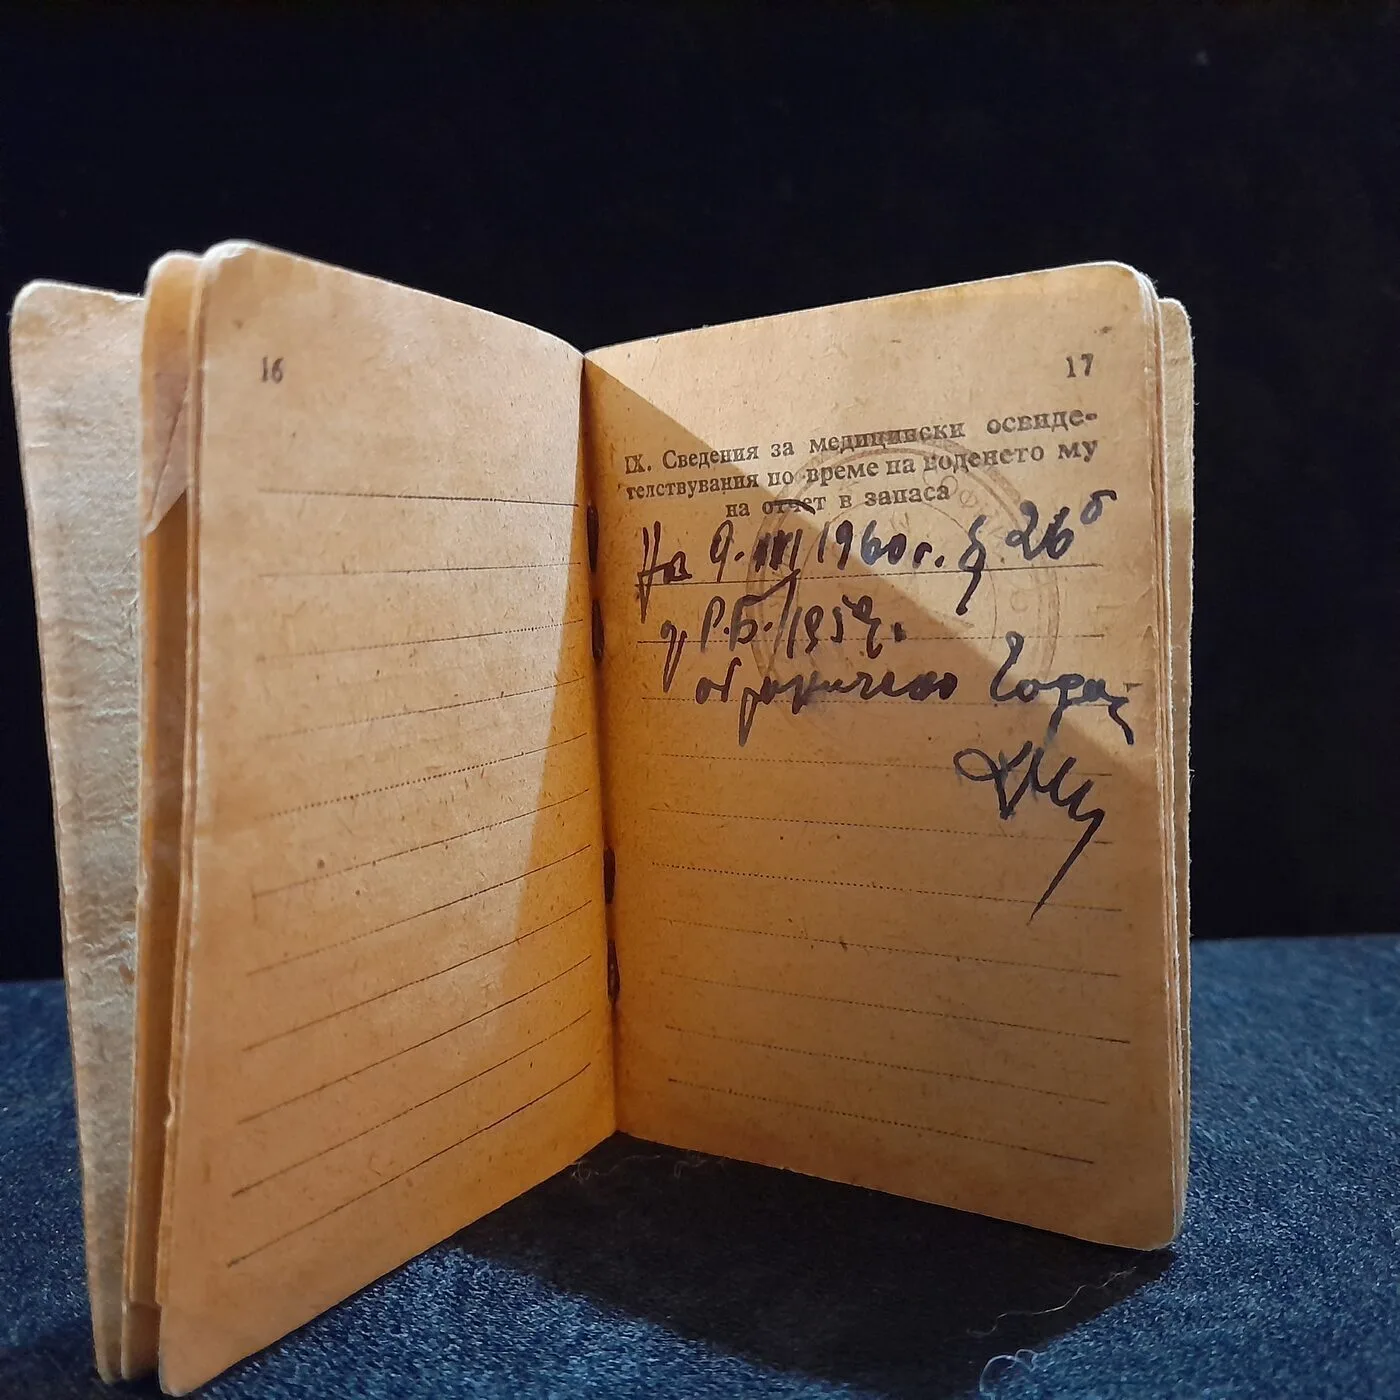 16
17
IX. Сведения за медицински освиде-
телствувания по време на воденето му
на отчет в запаса
На 9. III 1960 г. § 26 б
Р.Б. / 195
ограничено годен